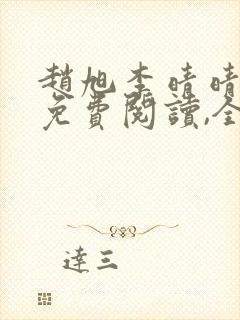 趙旭李晴晴
免費閱讀,全
達三